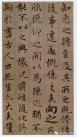 知老之将至及其所之既惓情
随事遷感慨係之矣向之所
欣俛仰之間以為陳迹猶不
能不以之興懷況脩短随化終
期於盡古人云死生亦大矣豈